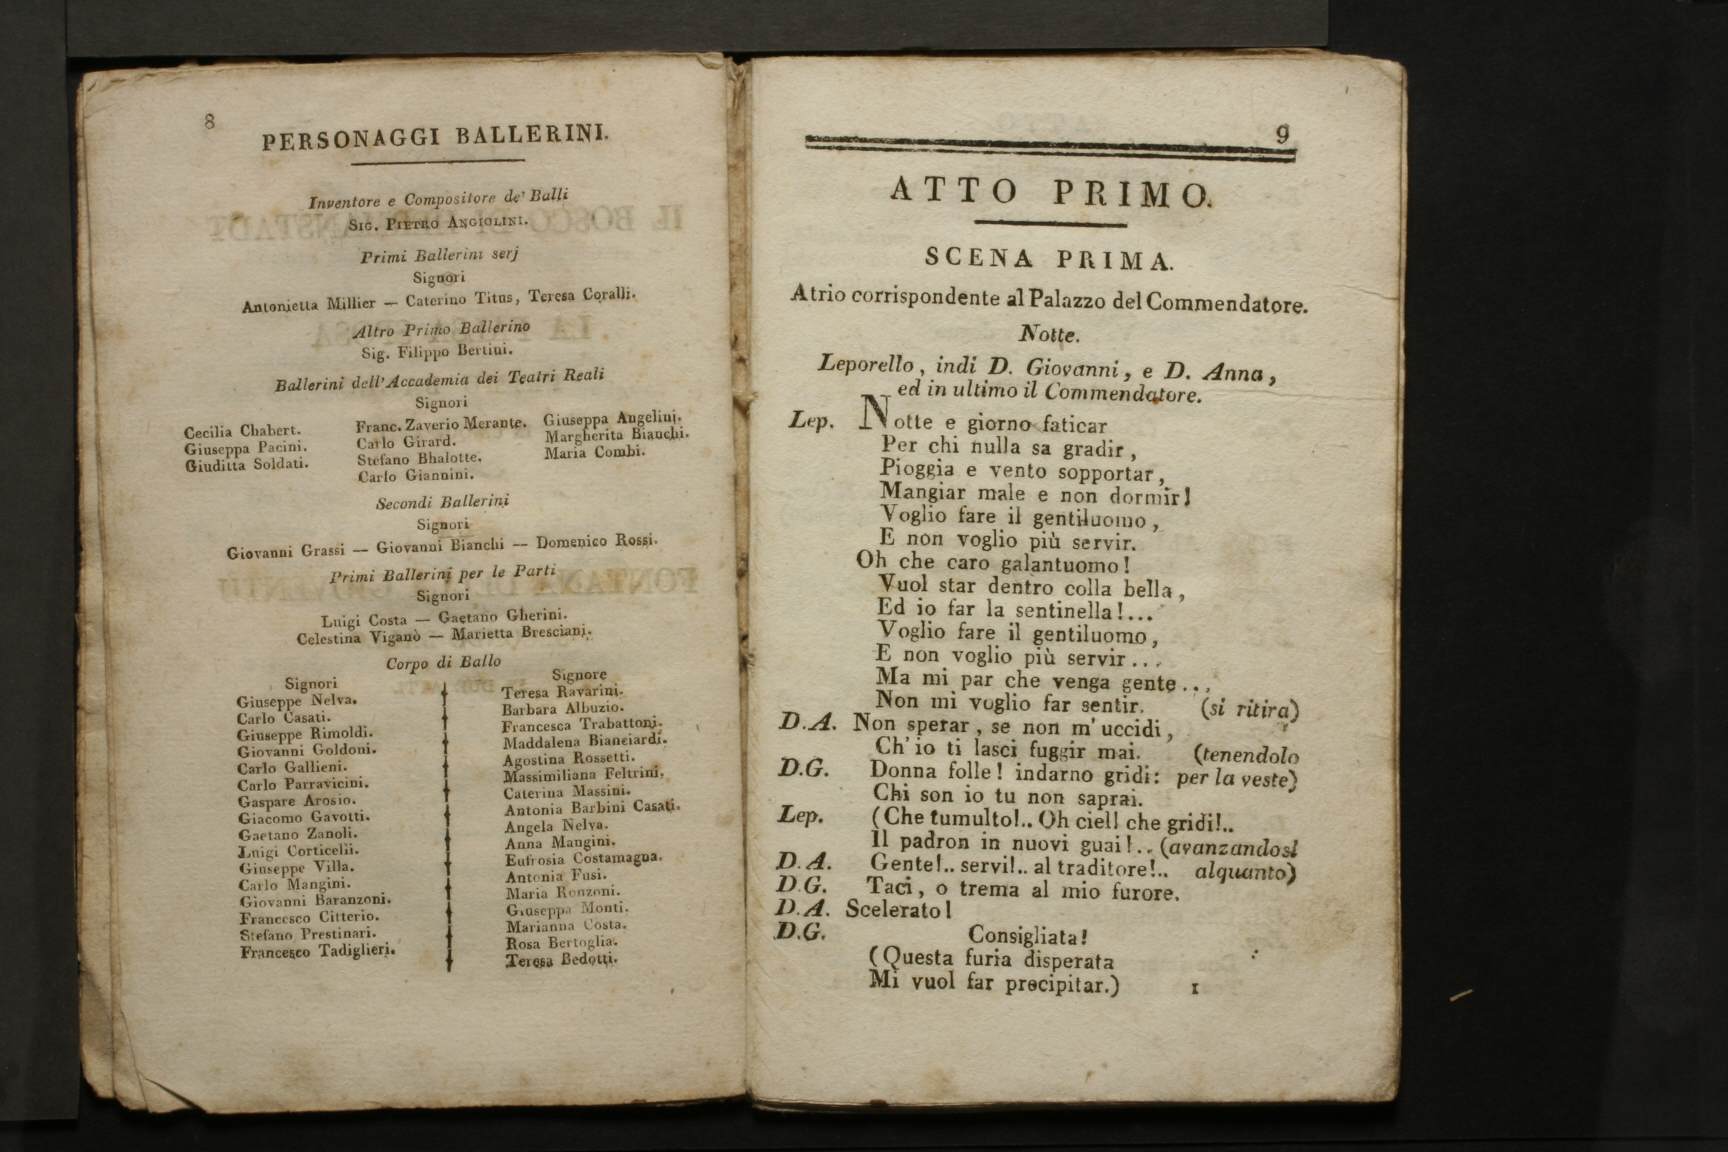 8
PERSONAGGI BALLERINI.
Inventore e Compositore de' Balli
SIG. PIETRO ANGIOLINI.
Primi Ballerini serj
Signori
Antonietta Millier — Caterino Titus, Teresa Coralli.
Altro Primo Ballerino
Sig. Filippo Bertini.
Ballerini dell'Accademia dei Teatri Reali
Signori
Cecilia Chabert.
Giuseppa Pacini.
Giuditta Soldati.
Franc. Zaverio Merante.
Carlo Girard.
Stefano Bhalotte.
Carlo Giannini.
Giuseppa Angelini.
Margherita Bianchi.
Maria Combi.
Secondi Ballerini
Signori
Giovanni Grassi — Giovanni Bianchi — Domenico Rossi.
Primi Ballerini per le Parti
Signori
Luigi Costa — Gaetano Gherini.
Celestina Viganò — Marietta Bresciani.
Corpo di Ballo
Signori
Giuseppe Nelva.
Carlo Casati.
Giuseppe Rimoldi.
Giovanni Goldoni.
Carlo Gallieni.
Carlo Parravicini.
Gaspare Arosio.
Giacomo Gavotti.
Gaetano Zanoli.
Luigi Corticelli.
Giuseppe Villa.
Carlo Mangini.
Giovanni Baranzoni.
Francesco Citterio.
Stefano Prestinari.
Francesco Tadiglieri.
Signore
Teresa Ravarini.
Barbara Albuzio.
Francesca Trabattoni.
Maddalena Bianciardi.
Agostina Rossetti.
Massimiliana Feltrini.
Caterina Massini.
Antonia Barbini Casati.
Angela Nelva.
Anna Mangini.
Eufrosia Costamagna.
Antonia Fusi.
Maria Ronzoni.
Giuseppa Monti.
Marianna Costa.
Rosa Bertoglia.
Teresa Bedotti.
9
ATTO PRIMO.
SCENA PRIMA.
Atrio corrispondente al Palazzo del Commendatore.
Notte.
Leporello, indi D. Giovanni, e D. Anna,
ed in ultimo il Commendatore.
Lep. Notte e giorno faticar
Per chi nulla sa gradir,
Pioggia e vento sopportar,
Mangiar male e non dormir!
Voglio fare il gentiluomo,
E non voglio più servir.
Oh che caro galantuomo!
Vuol star dentro colla bella,
Ed io far la sentinella!...
Voglio fare il gentiluomo,
E non voglio più servir...
Ma mi par che venga gente...
Non mi voglio far sentir. (si ritira)
D.A. Non sperar, se non m'uccidi,
Ch'io ti lasci fuggir mai. (tenendolo
D.G. Donna folle! indarno gridi: per la veste)
Chi son io tu non saprai.
Lep. (Che tumulto!.. Oh ciel! che gridi!..
Il padron in nuovi guai!.. (avanzandosi
D.A. Gente!.. servi!.. al traditore!.. alquanto)
D.G. Taci, o trema al mio furore.
D.A. Scelerato!
D.G. Consigliata!
(Questa furia disperata
Mi vuol far precipitar.) 1